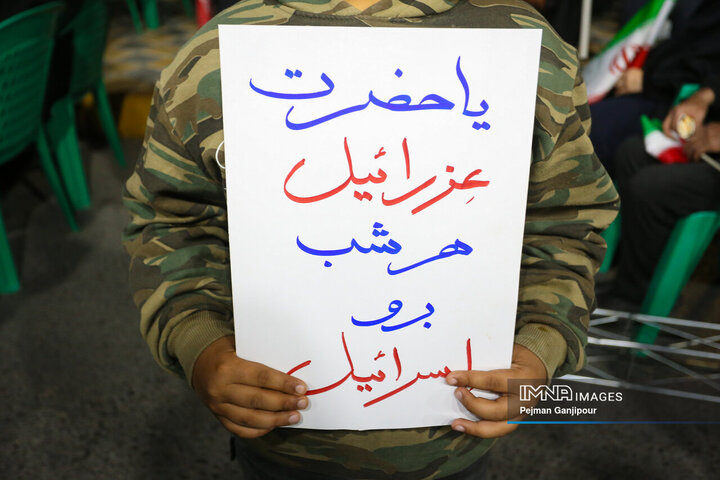 یا حضرت
عزرائیل
هر شب
برو
اسرائیل
IMNA IMAGES
Pejman Ganjipour